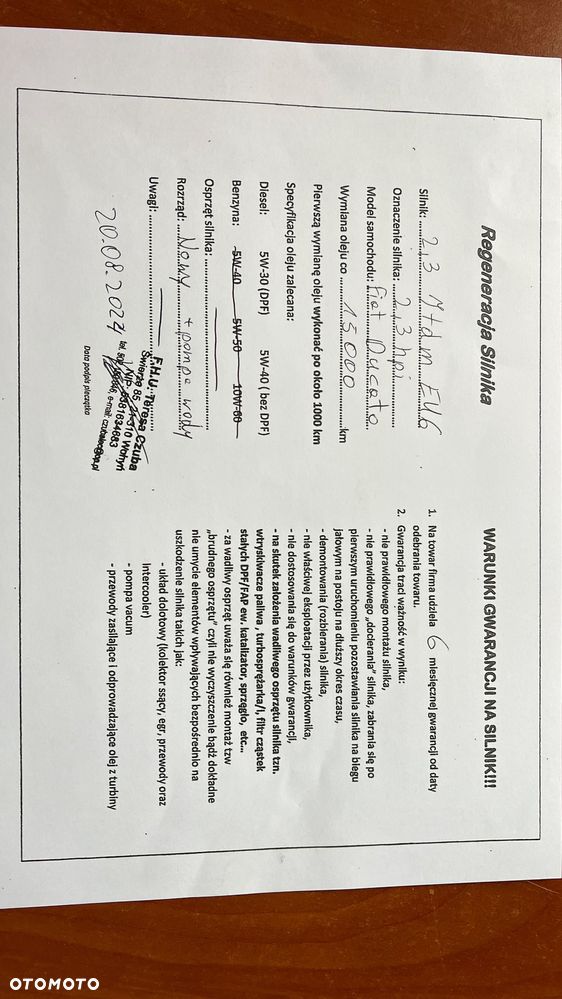 Regeneracja Silnika
Silnik: 2,3 Mtdm EU6
Oznaczenie silnika: 2,3 hpi
Model samochodu: Fiat Ducato
Wymiana oleju co 15000 km
Pierwszą wymianę oleju wykonać po około 1000 km
Specyfikacja oleju zalecana:
Diesel: 5W-30 (DPF) 5W-40 ( bez DPF)
Benzyna: 5W-40 5W-50 10W-60
Osprzęt silnika:
Rozrząd: Nowy + pompa wody
Uwagi:
F.H.U. Teresa Czuba
Świerże 85, 21-310 Wohyń
20.08.2024
Data podpis pieczątka
WARUNKI GWARANCJI NA SILNIK!!!
1. Na towar firma udziela 6 miesięcznej gwarancji od daty
odebrania towaru.
2. Gwarancja traci ważność w wyniku:
- nie prawidłowego montażu silnika,
- nie prawidłowego „docierania” silnika, zabrania się po
pierwszym uruchomieniu pozostawiania silnika na biegu
jałowym na postoju na dłuższy okres czasu,
- demontowania (rozbierania) silnika,
- nie właściwej eksploatacji przez użytkownika,
- nie dostosowania się do warunków gwarancji,
- na skutek założenia wadliwego osprzętu silnika tzn.
wtryskiwacze paliwa , turbosprężarka/i, filtr cząstek
stałych DPF/FAP ew. katalizator, sprzęgło, etc...
- za wadliwy osprzęt uważa się również montaż tzw
„brudnego osprzętu” czyli nie wyczyszczenie bądź dokładne
nie umycie elementów wpływających bezpośrednio na
uszkodzenie silnika takich jak:
- układ dolotowy (kolektor ssący, egr, przewody oraz
Intercooler)
- pompa vacum
- przewody zasilające i odprowadzające olej z turbiny
OTOMOTO